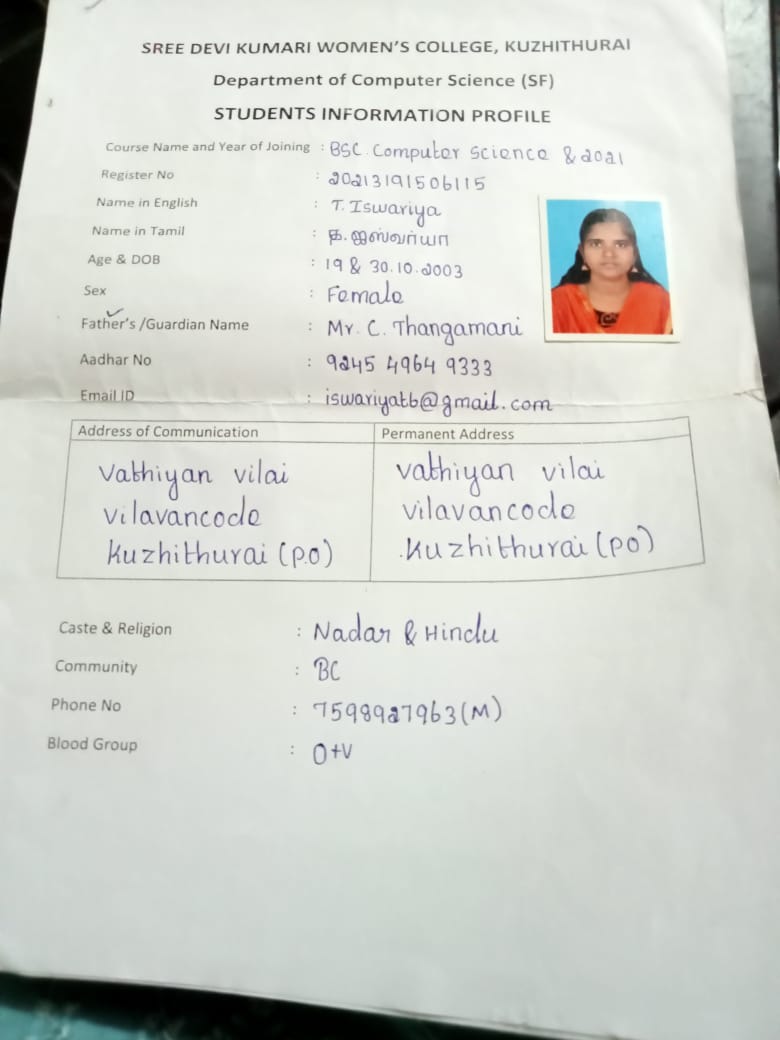 SREE DEVI KUMARI WOMEN'S COLLEGE, KUZHITHURAI
Department of Computer Science (SF)
STUDENTS INFORMATION PROFILE
Course Name and Year of Joining : BSC Computer Science & 2021
Register No : 20213191506115
Name in English : T. Iswariya
Name in Tamil : த. ஐஸ்வர்யா
Age & DOB : 19 & 30.10.2003
Sex : Female
Father's /Guardian Name : Mr. C. Thangamani
Aadhar No : 9245 4964 9333
Email ID : iswariyatb@gmail.com
Address of Communication Permanent Address
Vathiyan vilai vathiyan vilai
vilavancode vilavancode
Kuzhithurai (P.O) Kuzhithurai (PO)
Caste & Religion : Nadar & Hindu
Community : BC
Phone No : 7598927963 (M)
Blood Group : O+V